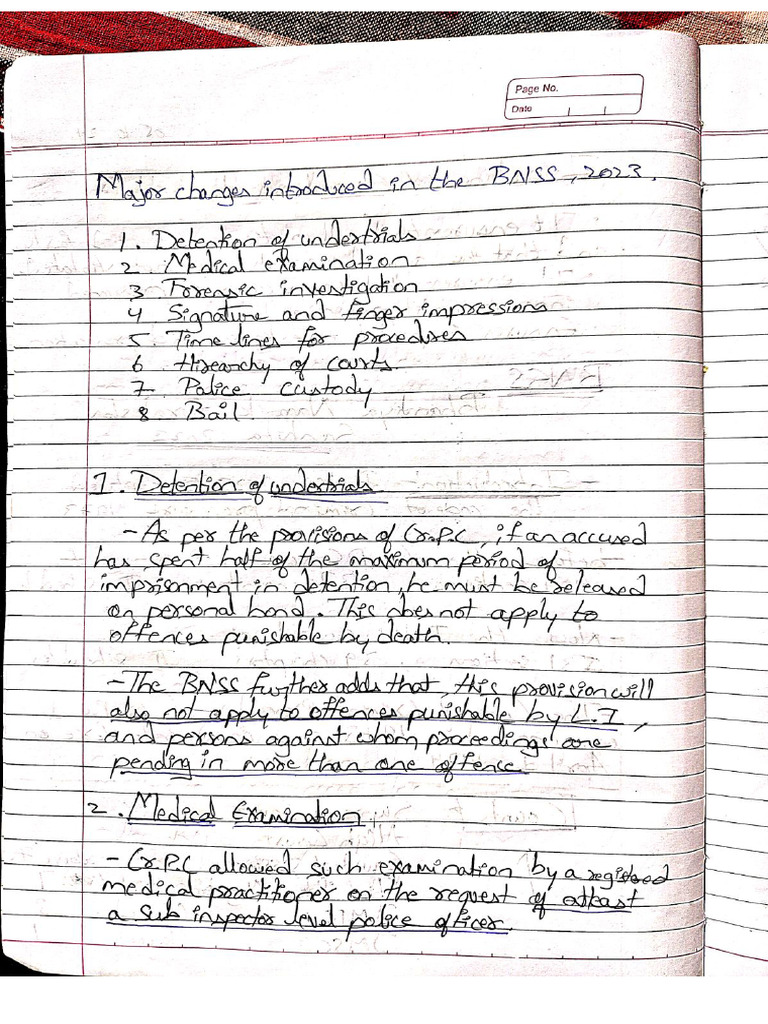 Page No.
Date
Major changes introduced in the BNSS, 2023.
1. Detention of undertrials.
2. Medical examination
3 Forensic investigation
4 Signature and finger impressions
5. Time lines for procedures
6 Hierarchy of courts.
7- Police custody
8 Bail.
1. Detention of undertrials.
- As per the provisions of Cr.P.C, if an accused
has spent half of the maximum period of
imprisonment in detention, he must be released
on personal bond. This does not apply to
offences punishable by death.
- The BNSS further adds that, this provision will
also not apply to offences punishable by L.I,
and persons against whom proceedings are
pending in more than one offence.
2. Medical Examination
- Cr.P.C allowed such examination by a registered
medical practitioner on the request of atleast
a sub inspector level police officer.